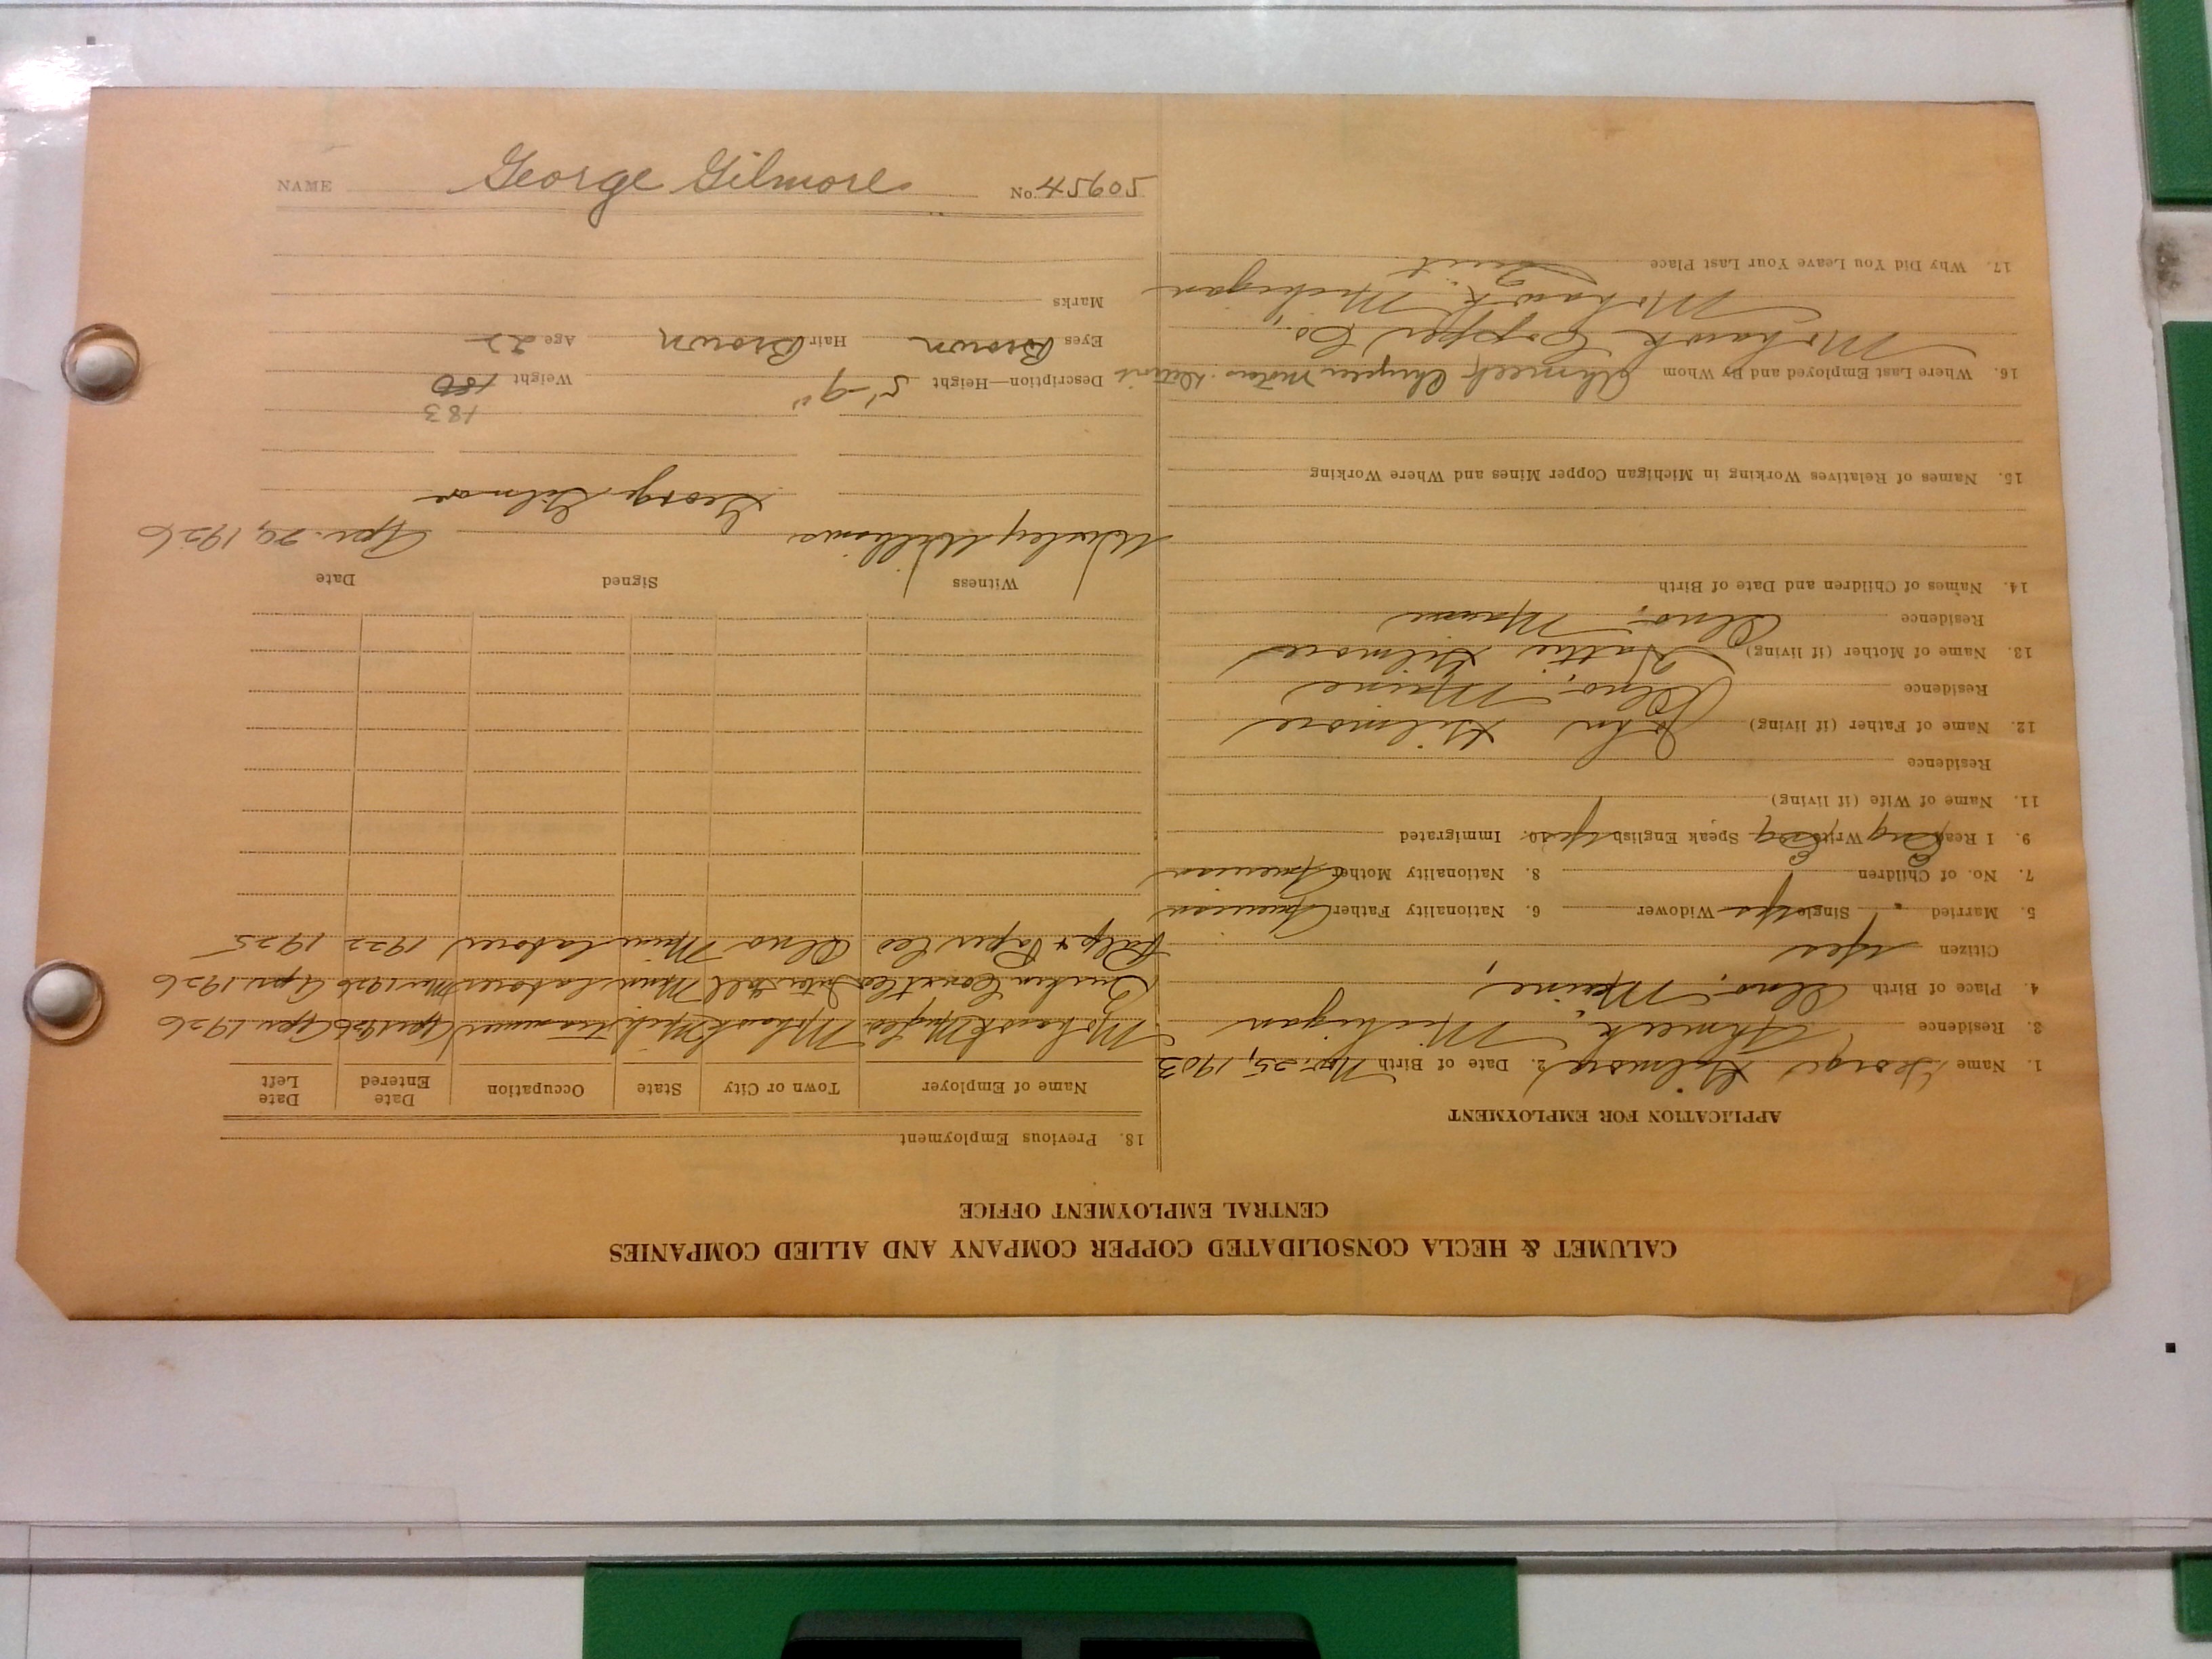 CALUMET & HECLA CONSOLIDATED COPPER COMPANY AND ALLIED COMPANIES
CENTRAL EMPLOYMENT OFFICE
APPLICATION FOR EMPLOYMENT
1. Name George Gilmore 2. Date of Birth Nov. 25, 1903
3. Residence Ahmeek, Michigan
4. Place of Birth Alna, Maine
Citizen Yes
5. Married Single Yes Widower 6. Nationality Father American
7. No. of Children 8. Nationality Mother American
9. I Read Eng Write Eng Speak English Yes 10. Immigrated
11. Name of Wife (if living)
Residence
12. Name of Father (if living) John Gilmore
Residence Alna, Maine
13. Name of Mother (if living) Hattie Gilmore
Residence Alna, Maine
14. Names of Children and Date of Birth
15. Names of Relatives Working in Michigan Copper Mines and Where Working
16. Where Last Employed and By Whom Ahmeek Chrysler Motors Detroit
Mohawk Copper Co.,
Mohawk, Michigan
17. Why Did You Leave Your Last Place Quit
18. Previous Employment
Name of Employer Town or City State Occupation Date Entered Date Left
Mohawk Mng Co Mohawk Mich Trammer Apr 1926 Apr. 1926
Const Co Maine Laborer Mar 1926 Apr. 1926
Pulp & Paper Co Alna Maine Laborer 1922 1925
Witness Signed Date
Wesley Williams George Gilmore Apr. 29, 1926
183
Description—Height 5'-9" Weight 180
Eyes Brown Hair Brown Age 22
Marks
NAME George Gilmore No. 45605